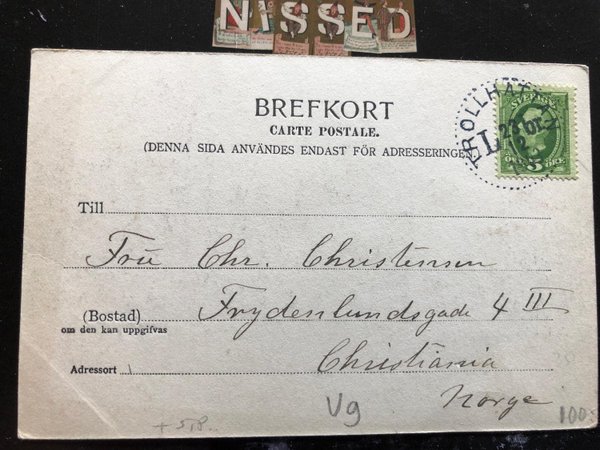 NISSED
BREFKORT
CARTE POSTALE.
(DENNA SIDA ANVÄNDES ENDAST FÖR ADRESSERINGEN
TROLLHÄTTAN
SVERIGE
L
ÖRE 5 ÖRE
Till
Frü Chr. Christensen
(Bostad) Frydenlundsgade 4 III
om den kan uppgifvas
Christiania
Adressort
Norge
+ 5,8
Vg
100